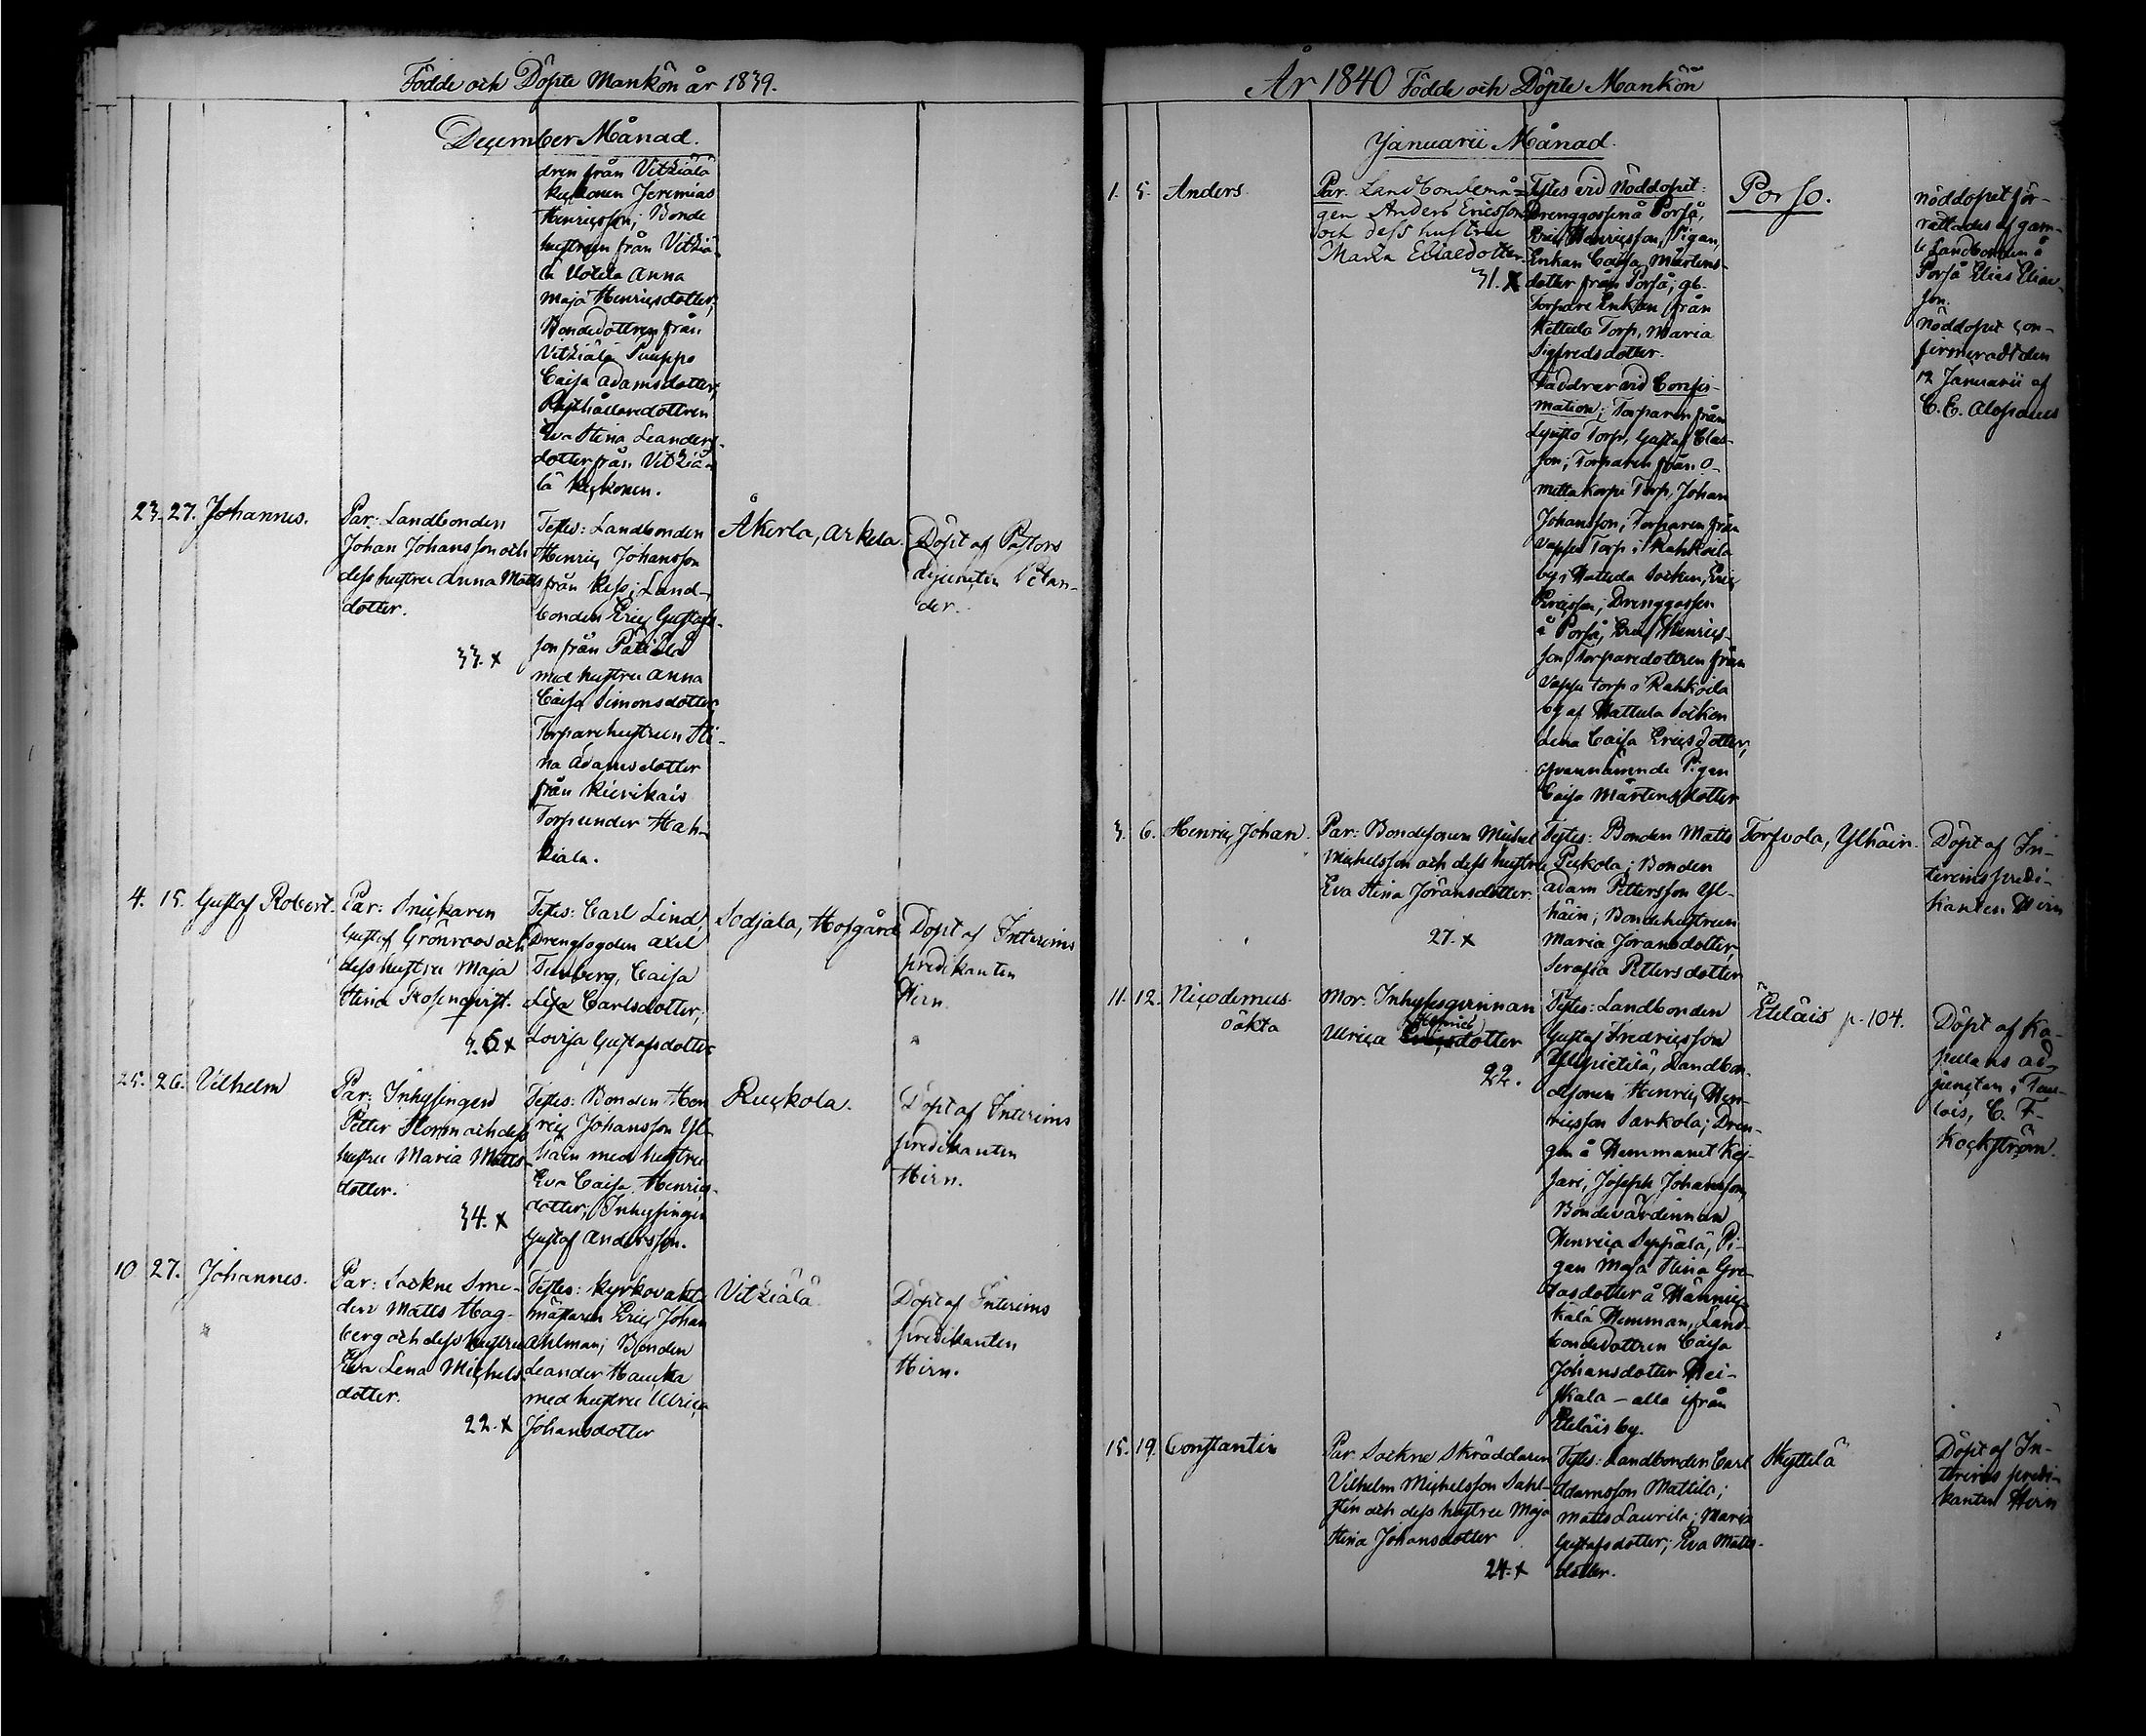 Födde och Döpte Mankön år 1839.
December Månad.
dren från Vitziälä
Keckonen Jeremias
Henricsson; Bonde
hustrun från Vitziä-
lä Uotila Anna
Maja Henricsdotter;
Bondedottren från
Vitziälä Pumppo
Caisa Adamsdotter;
Rusthållaredottren
Eva Stina Leanders-
dotter från Vitziä-
lä Keckonen.
23. 27. Johannes.
Par: Landbonden
Johan Johansson och
dess hustru Anna Matts
dotter.
33. x
Testes: Landbonden
Henric Johansson
från Kessi; Land-
bonden Eric Gustafs-
son från Pätilä
med hustru Anna
Caisa Simonsdotter,
Torpare hustrun Sti-
na Adamsdotter
från Kierikais
Torp under Hah-
kiala.
Åkerla, Arkela.
Döpt af Pastors
adjuncten
4. 15. Gustaf Robert.
Par: Snickaren
Gustaf Grönroos och
dess hustru Maja
Stina Rosenqvist.
26 x
Testes: Carl Lind,
Drengfogden Axel
Tenberg, Caisa
Lisa Carlsdotter;
Lovisa Gustafsdotter
Sodjala, Hofgård
Döpt af Interims
predikanten
Hirn.
25. 26. Vilhelm
Par: Inhysingen
Petter Storm och dess
hustru Maria Matts-
dotter.
34. x
Testes: Bonden Hen
ric Johansson Yl-
häin med hustru
Eva Caisa Henrics-
dotter; Inhysingen
Gustaf Andersson.
Ruckola.
Döpt af Interims
predikanten
Hirn.
10 27. Johannes.
Par: Sockne Sme-
den Matts Hag-
berg och dess hustru
Eva Lena Michels
dotter.
22. x
Testes: Kyrkovakt
mästaren Eric Johan
Ahlman; Bonden
Leander Haucka
med hustru Ulrica
Johansdotter
Vitziälä
Döpt af Interims
predikanten
Hirn.
År 1840 Födde och Döpte Mankön
Januarii Månad.
1. 5. Anders.
Par. Landbondemå-
gen Anders Ericsson
och dess hustru
Maria Eliaedotter.
31. x
Testes vid Nöddopet:
Drenggossen å Porså,
Eric Henricsson, Pigan,
Enkan Caisa Mårtens-
dotter från Porså; gl.
Torpare Enkan från
Kettula Torp, Maria
Sigfredsdotter.
Faddrar vid Confir-
mation; Torparen från
Torp, Gustaf Elias-
son; Torparen från
Torp, Johan
Johansson; Torparen från
Vappu Torp i Rahkoila
by i Hattula Socken, Eric
Ericsson; Drenggossen
å Porså, Eric Henrics-
son, Torparedottren från
Vappu torp i Rahkoila
by af Hattula Socken
Lena Caisa Ericsdotter,
ofvannämnde Pigan
Caisa Mårtensdotter
Porso.
nöddopet för-
rättades af gam-
le Landbonden å
Porså Elias Elias-
son.
Nöddopet con-
firmeradt den
12 Januarii af
C. E. Alopaeus
3. 6. Henric Johan.
Par: Bondesonen Michel
Michelsson och dess hustru
Eva Stina Jöransdotter.
27. x
Testes: Bonden Matts
Peckola; Bonden
Adam Pettersson Yl-
häin; Bondehustrun
Maria Jöransdotter,
Serafia Pettersdotter
Torfvola, Ylhäin.
Döpt af In-
terimspredi-
kanten Hirn
11. 12. Nicodemus
oäkta
Mor: Inhyses qvinnan
Ulrica dotter
22.
Testes: Landbonden
Gustaf Fredricsson
Landbon-
desonen Henric Hen-
ricsson Sankola; Dren-
gen å Hemmanet Kes-
sari, Joseph Johansson,
Bondevärdinnan
Henrica Seppälä, Pi-
gan Maja Stina Gre-
dotter å
kälä Hemman, Land-
bondedottren Caisa
Johansdotter Hei-
skala – alla ifrån
Eteläis by.
Eteläis p. 104.
Döpt af Ka-
pellans ad-
juncten i Tau-
lois, C. F.
Kockström.
15. 19. Constantin
Par. Sockne Skräddaren
Vilhelm Michelsson Sahl-
stén och dess hustru Maja
Stina Johansdotter
24. x
Testes: Landbonden Carl
Adamsson Mattila;
Matts Laurila; Maria
Gustafsdotter; Eva Matts-
dotter.
Skyttilä
Döpt af In-
terims predi-
kanten Hirn